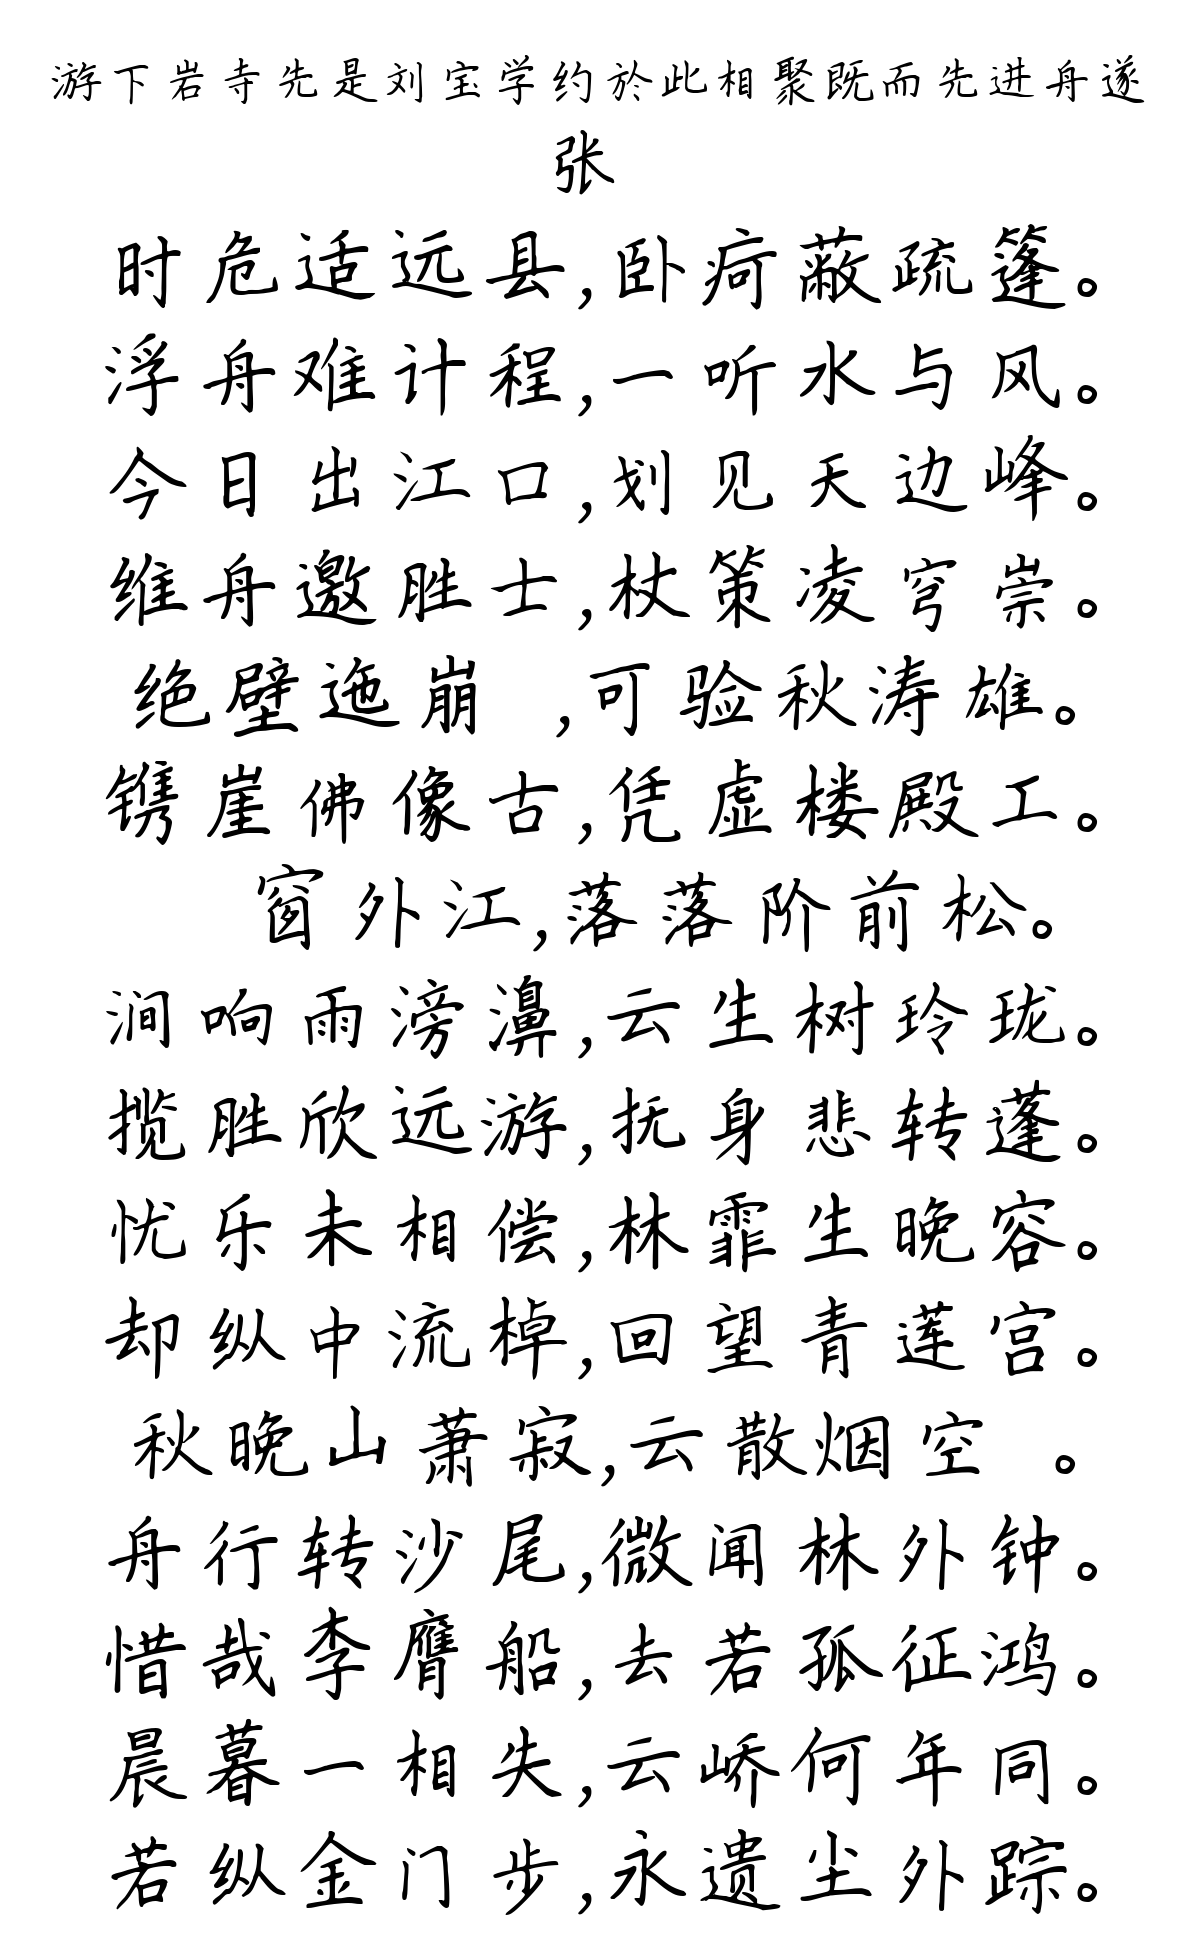 游下岩寺先是刘宝学约於此相聚既而先进舟遂
张
时危适远县,卧疴蔽疏篷。
浮舟难计程,一听水与风。
今日出江口,划见天边峰。
维舟邀胜士,杖策凌穹崇。
绝壁迤崩 ,可验秋涛雄。
镌崖佛像古,凭虚楼殿工。
窗外江,落落阶前松。
涧响雨滂濞,云生树玲珑。
揽胜欣远游,抚身悲转蓬。
忧乐未相偿,林霏生晚容。
却纵中流棹,回望青莲宫。
秋晚山萧寂,云散烟空 。
舟行转沙尾,微闻林外钟。
惜哉李膺船,去若孤征鸿。
晨暮一相失,云峤何年同。
若纵金门步,永遗尘外踪。